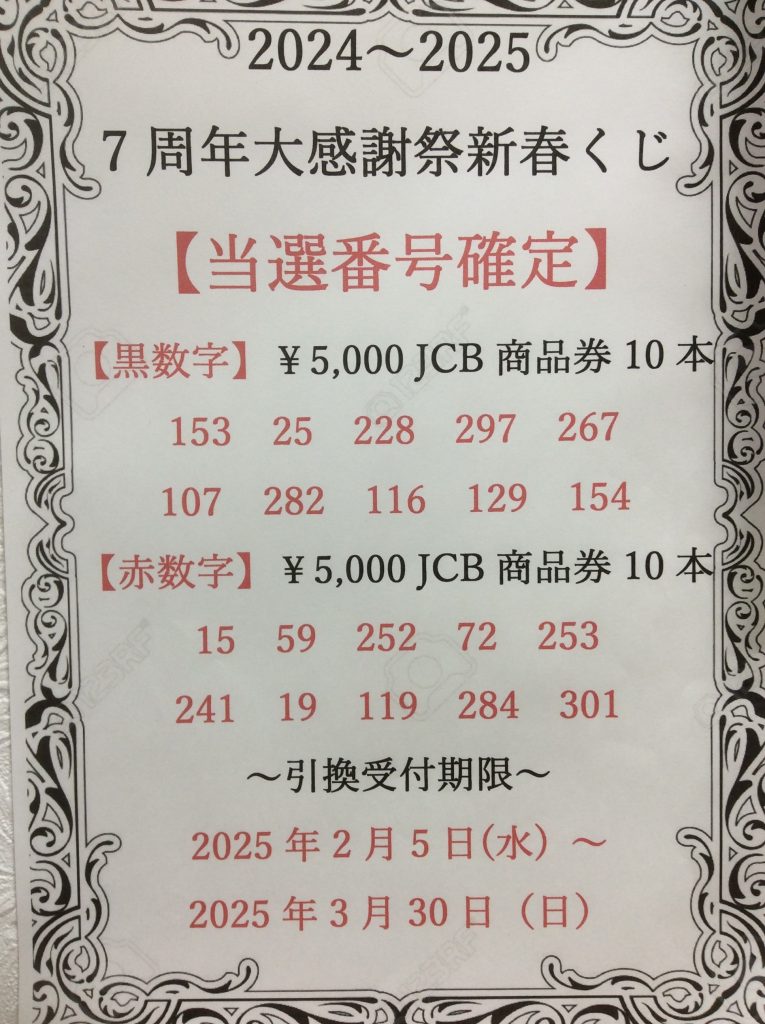 2024～2025
7周年大感謝祭新春くじ
【当選番号確定】
【黒数字】 ￥5,000 JCB 商品券 10 本
153 25 228 297 267
107 282 116 129 154
【赤数字】 ￥5,000 JCB 商品券 10 本
15 59 252 72 253
241 19 119 284 301
～引換受付期限～
2025 年 2 月 5 日(水) ～
2025 年 3 月 30 日（日）
123RF